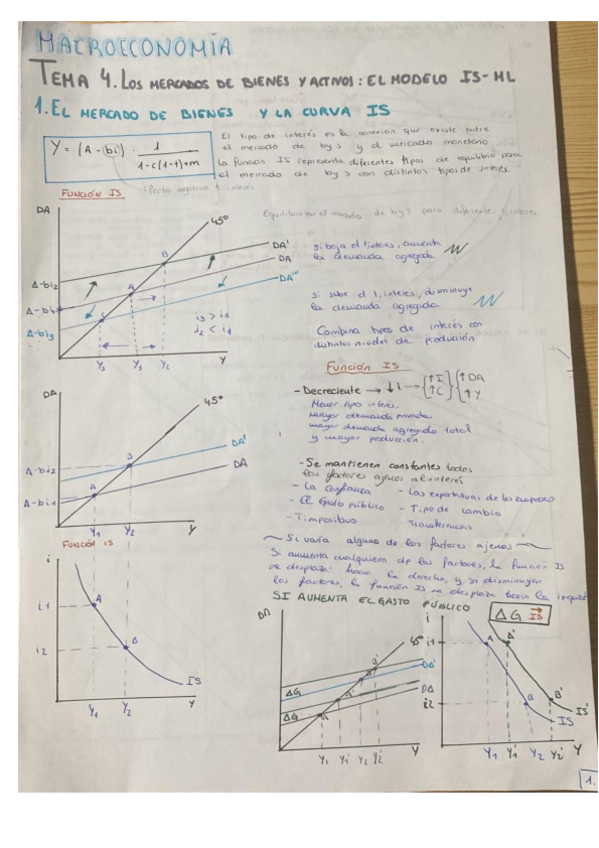 MACROECONOMÍA
TEMA 4. LOS MERCADOS DE BIENES Y ACTIVOS: EL MODELO IS-ML
1. EL MERCADO DE BIENES Y LA CURVA IS
Y = (A - bi) · 1 / 1-c(1-t)+m
El tipo de interés es la conexión que existe entre
el mercado de b y s y el mercado monetario
La función IS representa diferentes tipos de equilibrio para
el mercado de b y s con distintos tipos de interés.
FUNCIÓN IS
Equilibrio en el mercado de b y s para diferentes t. interés
DA
45º
DA'
DA
DA'''
A-bi2
A-bi1
A-bi3
B
A
i3 > i1
i2 < i1
Y3 Y1 Y2 Y
si baja el t. interés, aumenta
la demanda agregada
si sube el t. interés, disminuye
la demanda agregada
Combina tipos de interés con
distintos niveles de producción
Función IS
- Decreciente → ↓i → {↑I ↑C} {↑DA ↑Y
Menor tipo interés.
Mayor demanda privada
mayor demanda agregada total
y mayor producción.
DA
45º
DA'
DA
A-bi2
A-bi1
B
A
Y1 Y2 Y
- Se mantienen constantes todos
los factores ajenos al interés
- La confianza - Las expectativas de los empresarios
- El Gpúblico - Tipo de cambio
- T impositivo Transferencias
Si varía alguno de los factores ajenos
Si aumenta cualquiera de los factores, la función IS
se desplaza hacia la derecha, y si disminuyen
los factores, la función IS se desplaza hacia la
FUNCIÓN IS
i
i1
i2
A
B
IS
Y1 Y2 Y
SI AUMENTA EL GASTO PÚBLICO
ΔG IS
DA
45º
DA'
DA
ΔG
ΔG
A A' B B'
Y1 Y1' Y2 Y2' Y
i
i1
i2
A A'
B B'
IS'
IS
Y1 Y1' Y2 Y2' Y
1.